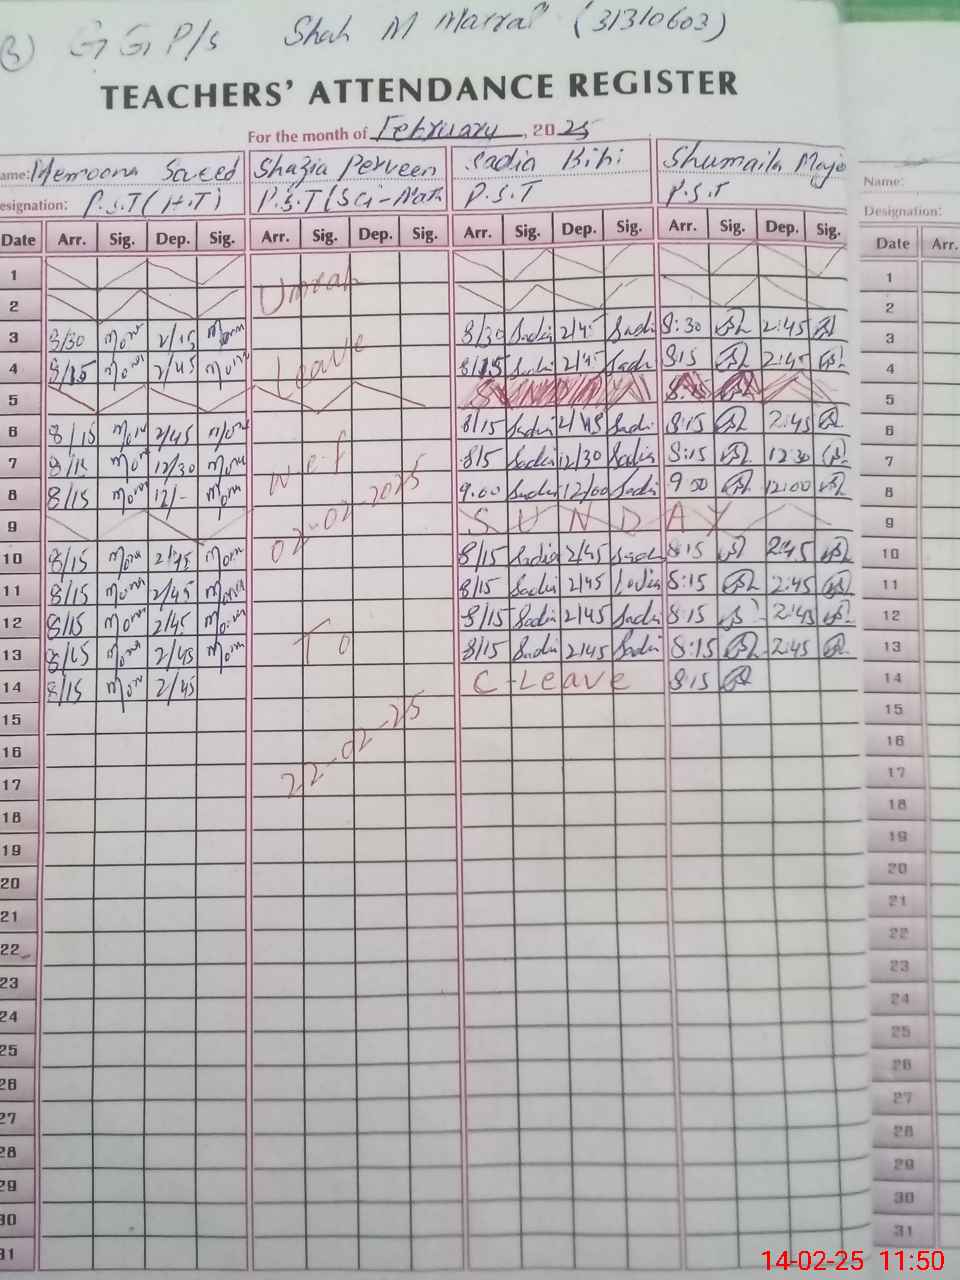 (3) GGP/s Shah M Marral (31310603)
TEACHERS' ATTENDANCE REGISTER
For the month of February, 2025
ame: Memoona Saeed Shazia Perveen Sadia Bibi Shumaila Maje
esignation: P.S.T (H.T) P.S.T (Sci-Math P.S.T P.S.T
Name:
Designation:
Date Arr. Sig. Dep. Sig. Arr. Sig. Dep. Sig. Arr. Sig. Dep. Sig. Arr. Sig. Dep. Sig. Date Arr.
1 1
2 Umrah 2
3 8/30 2/15 8/30 Sadia 2/45 Sadi 8:30 2:45 3
4 8/15 2/45 Leave 8/15 Sadi 2/45 Sadi 8:15 2:45 4
5 5
6 8/15 2/45 8/15 Sadia 2/45 Sadi 8:15 2:45 6
7 8/15 12/30 w.e.f 8/15 Sadia 12/30 Sadia 8:15 12:30 7
8 8/15 12/- 9.00 Sadia 12/00 Sadi 9:00 12:00 8
9 02-02-2025 SUNDAY 9
10 8/15 2/45 8/15 Sadia 2/45 Sadi 8:15 2:45 10
11 8/15 2/45 8/15 Sadia 2/45 Sadia 8:15 2:45 11
12 8/15 2/45 8/15 Sadia 2/45 Sadi 8:15 2:45 12
13 8/15 2/45 To 8/15 Sadia 2/45 Sadia 8:15 2:45 13
14 8/15 2/45 C-Leave 8:15 14
15 15
16 22-02-25 16
17 17
18 18
19 19
20 20
21 21
22 22
23 23
24 24
25 25
26 26
27 27
28 28
29 29
30 30
31 31
14-02-25 11:50